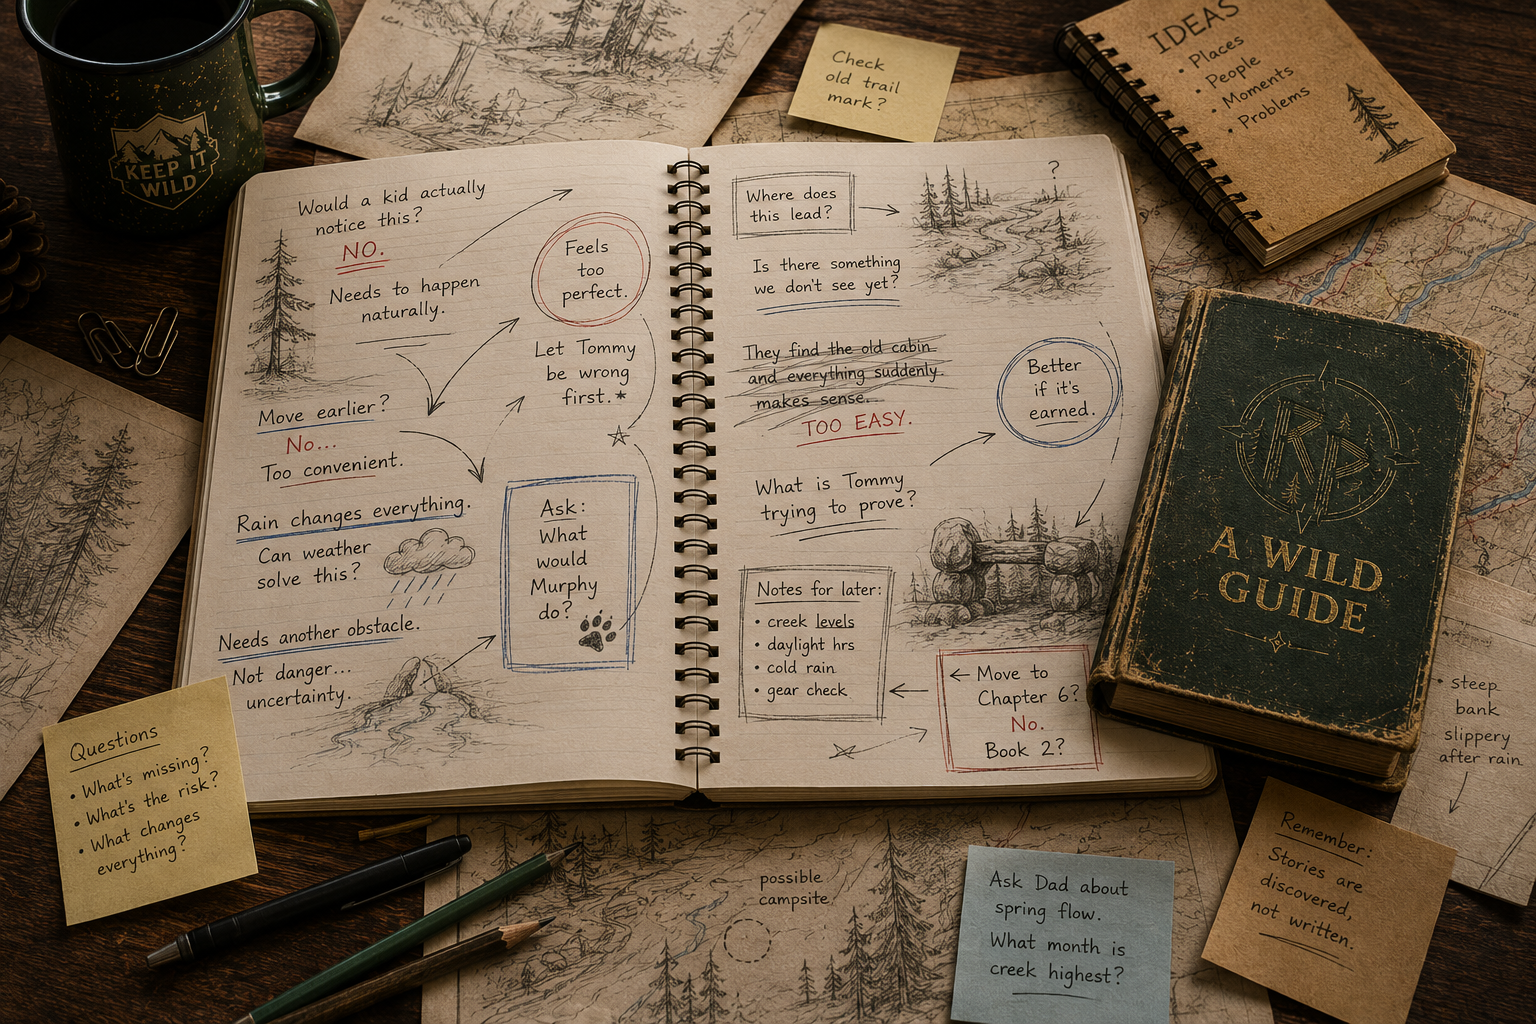 KEEP IT
WILD
Check
old trail
mark?
IDEAS
• Places
• People
• Moments
• Problems
Would a kid actually
notice this?
NO.
Needs to happen
naturally.
Feels
too
perfect.
Let Tommy
be wrong
first.*
Move earlier?
No...
Too convenient.
Rain changes everything.
Can weather
solve this?
Ask:
What
would
Murphy
do?
Needs another obstacle.
Not danger...
uncertainty.
Where does
this lead?
?
Is there something
we don't see yet?
They find the old cabin
and everything suddenly
makes sense.
TOO EASY.
Better
if it's
earned.
What is Tommy
trying to prove?
Notes for later:
• creek levels
• daylight hrs
• cold rain
• gear check
← Move to
Chapter 6?
No.
Book 2?
RP
A WILD
GUIDE
• steep
bank
slippery
after rain
Questions
• What's missing?
• What's the risk?
• What changes
everything?
possible
campsite
Ask Dad about
spring flow.
What month is
creek highest?
Remember:
Stories are
discovered,
not written.